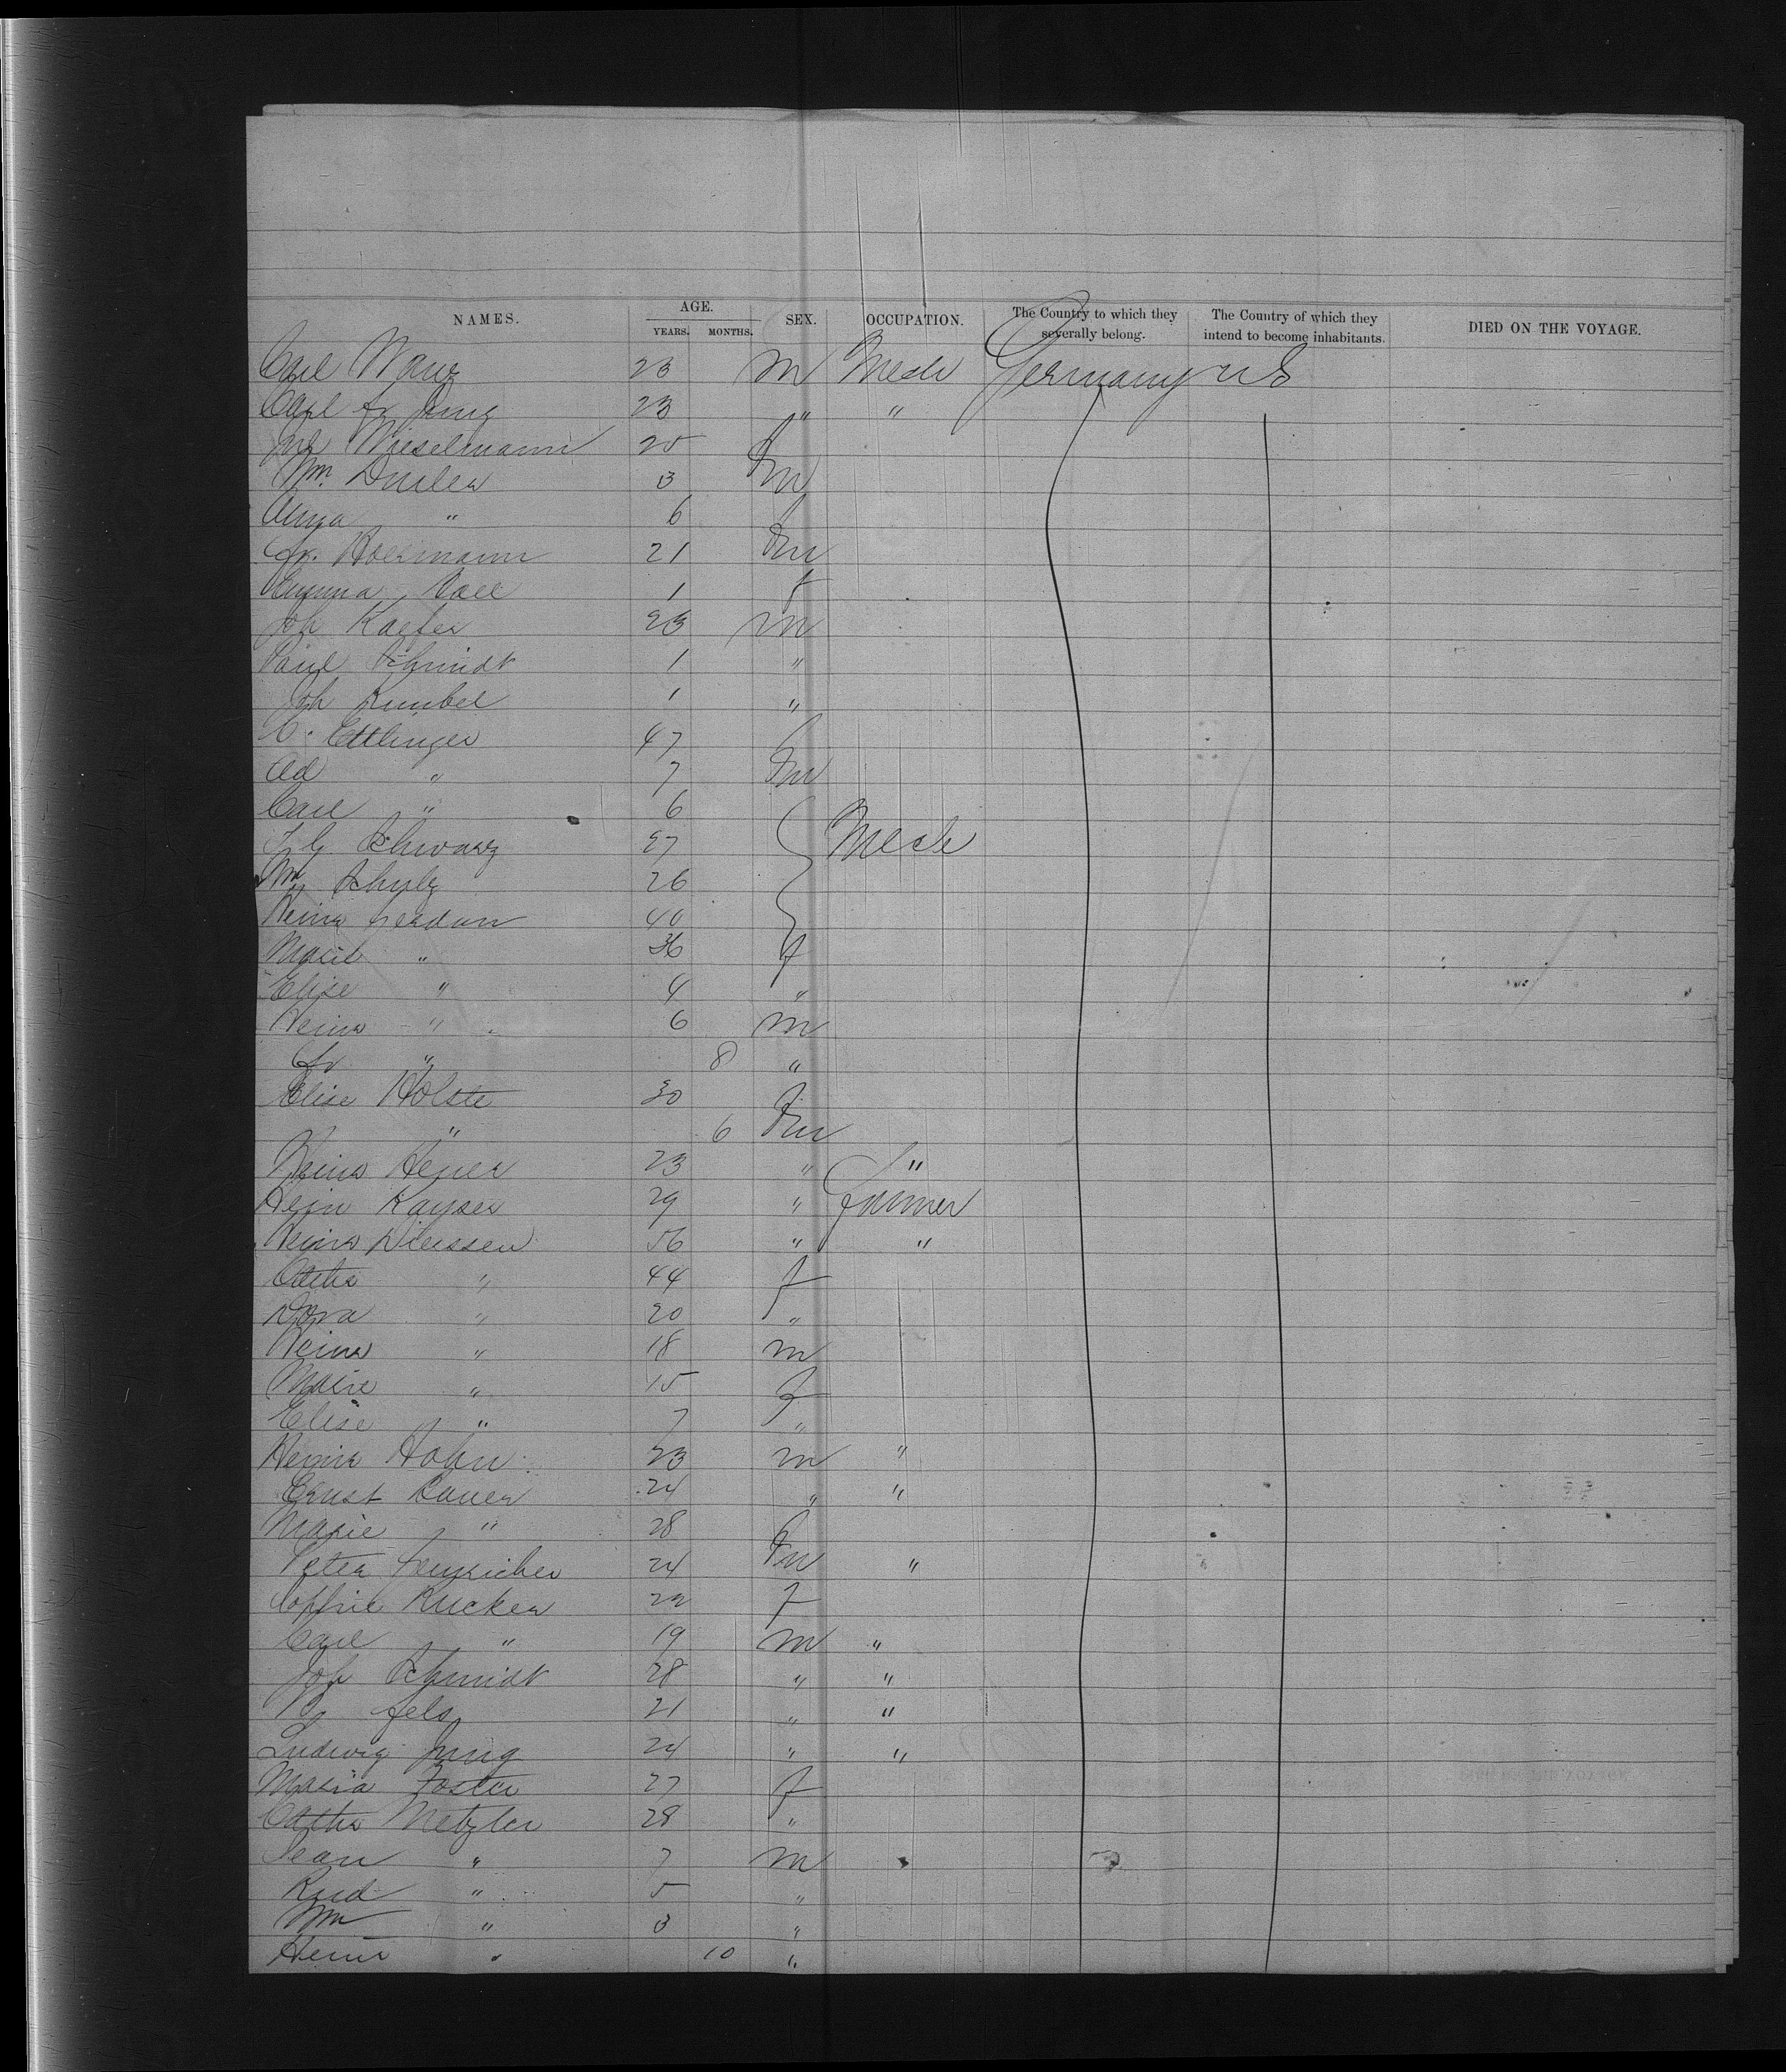 NAMES. AGE. YEARS. MONTHS. SEX. OCCUPATION. The Country to which they severally belong. The Country of which they intend to become inhabitants. DIED ON THE VOYAGE.
Carl 23 m Mech Germany US
Carl Fr Jung 23 " "
Wieselmann 25 f
Wm. 3 m
Anna " 6 f
Fr. 21 m
Emma 1 f
Joh Kaefer 23 m
Paul Schmidt 1 "
Joh Kumbel 1 "
C. Ettlinger 47 f
Ad " 7 m
Carl " 6
Schwarz 27 Mech
Wm Schulz 26
Heinr Gerdau 40
Marie " 36 f
Elise " 4 "
Heinr " 6 m
Fr " 8 "
Elise Holste 30 f
" 6 m
Heinr 23 " "
Hein Kayser 29 " farmer
Heinr Dierssen 56 " "
Cathr " 44 f
Dora " 20 "
Heinr " 18 m
Marie " 15 f
Elise " 7 "
Heinr Hahn 23 m "
Ernst Bauer 24 " "
Marie " 28 f
Peter 24 m "
Sophie Rucker 22 f
Carl " 19 m "
Joh Schmidt 28 " "
Fels 21 " "
Ludwig Jung 24 " "
Maria Foster 27 f
Cathr Metzler 28 "
Jean " 7 m
Rud " 5 "
Wm " 3 "
Heinr " 10 "